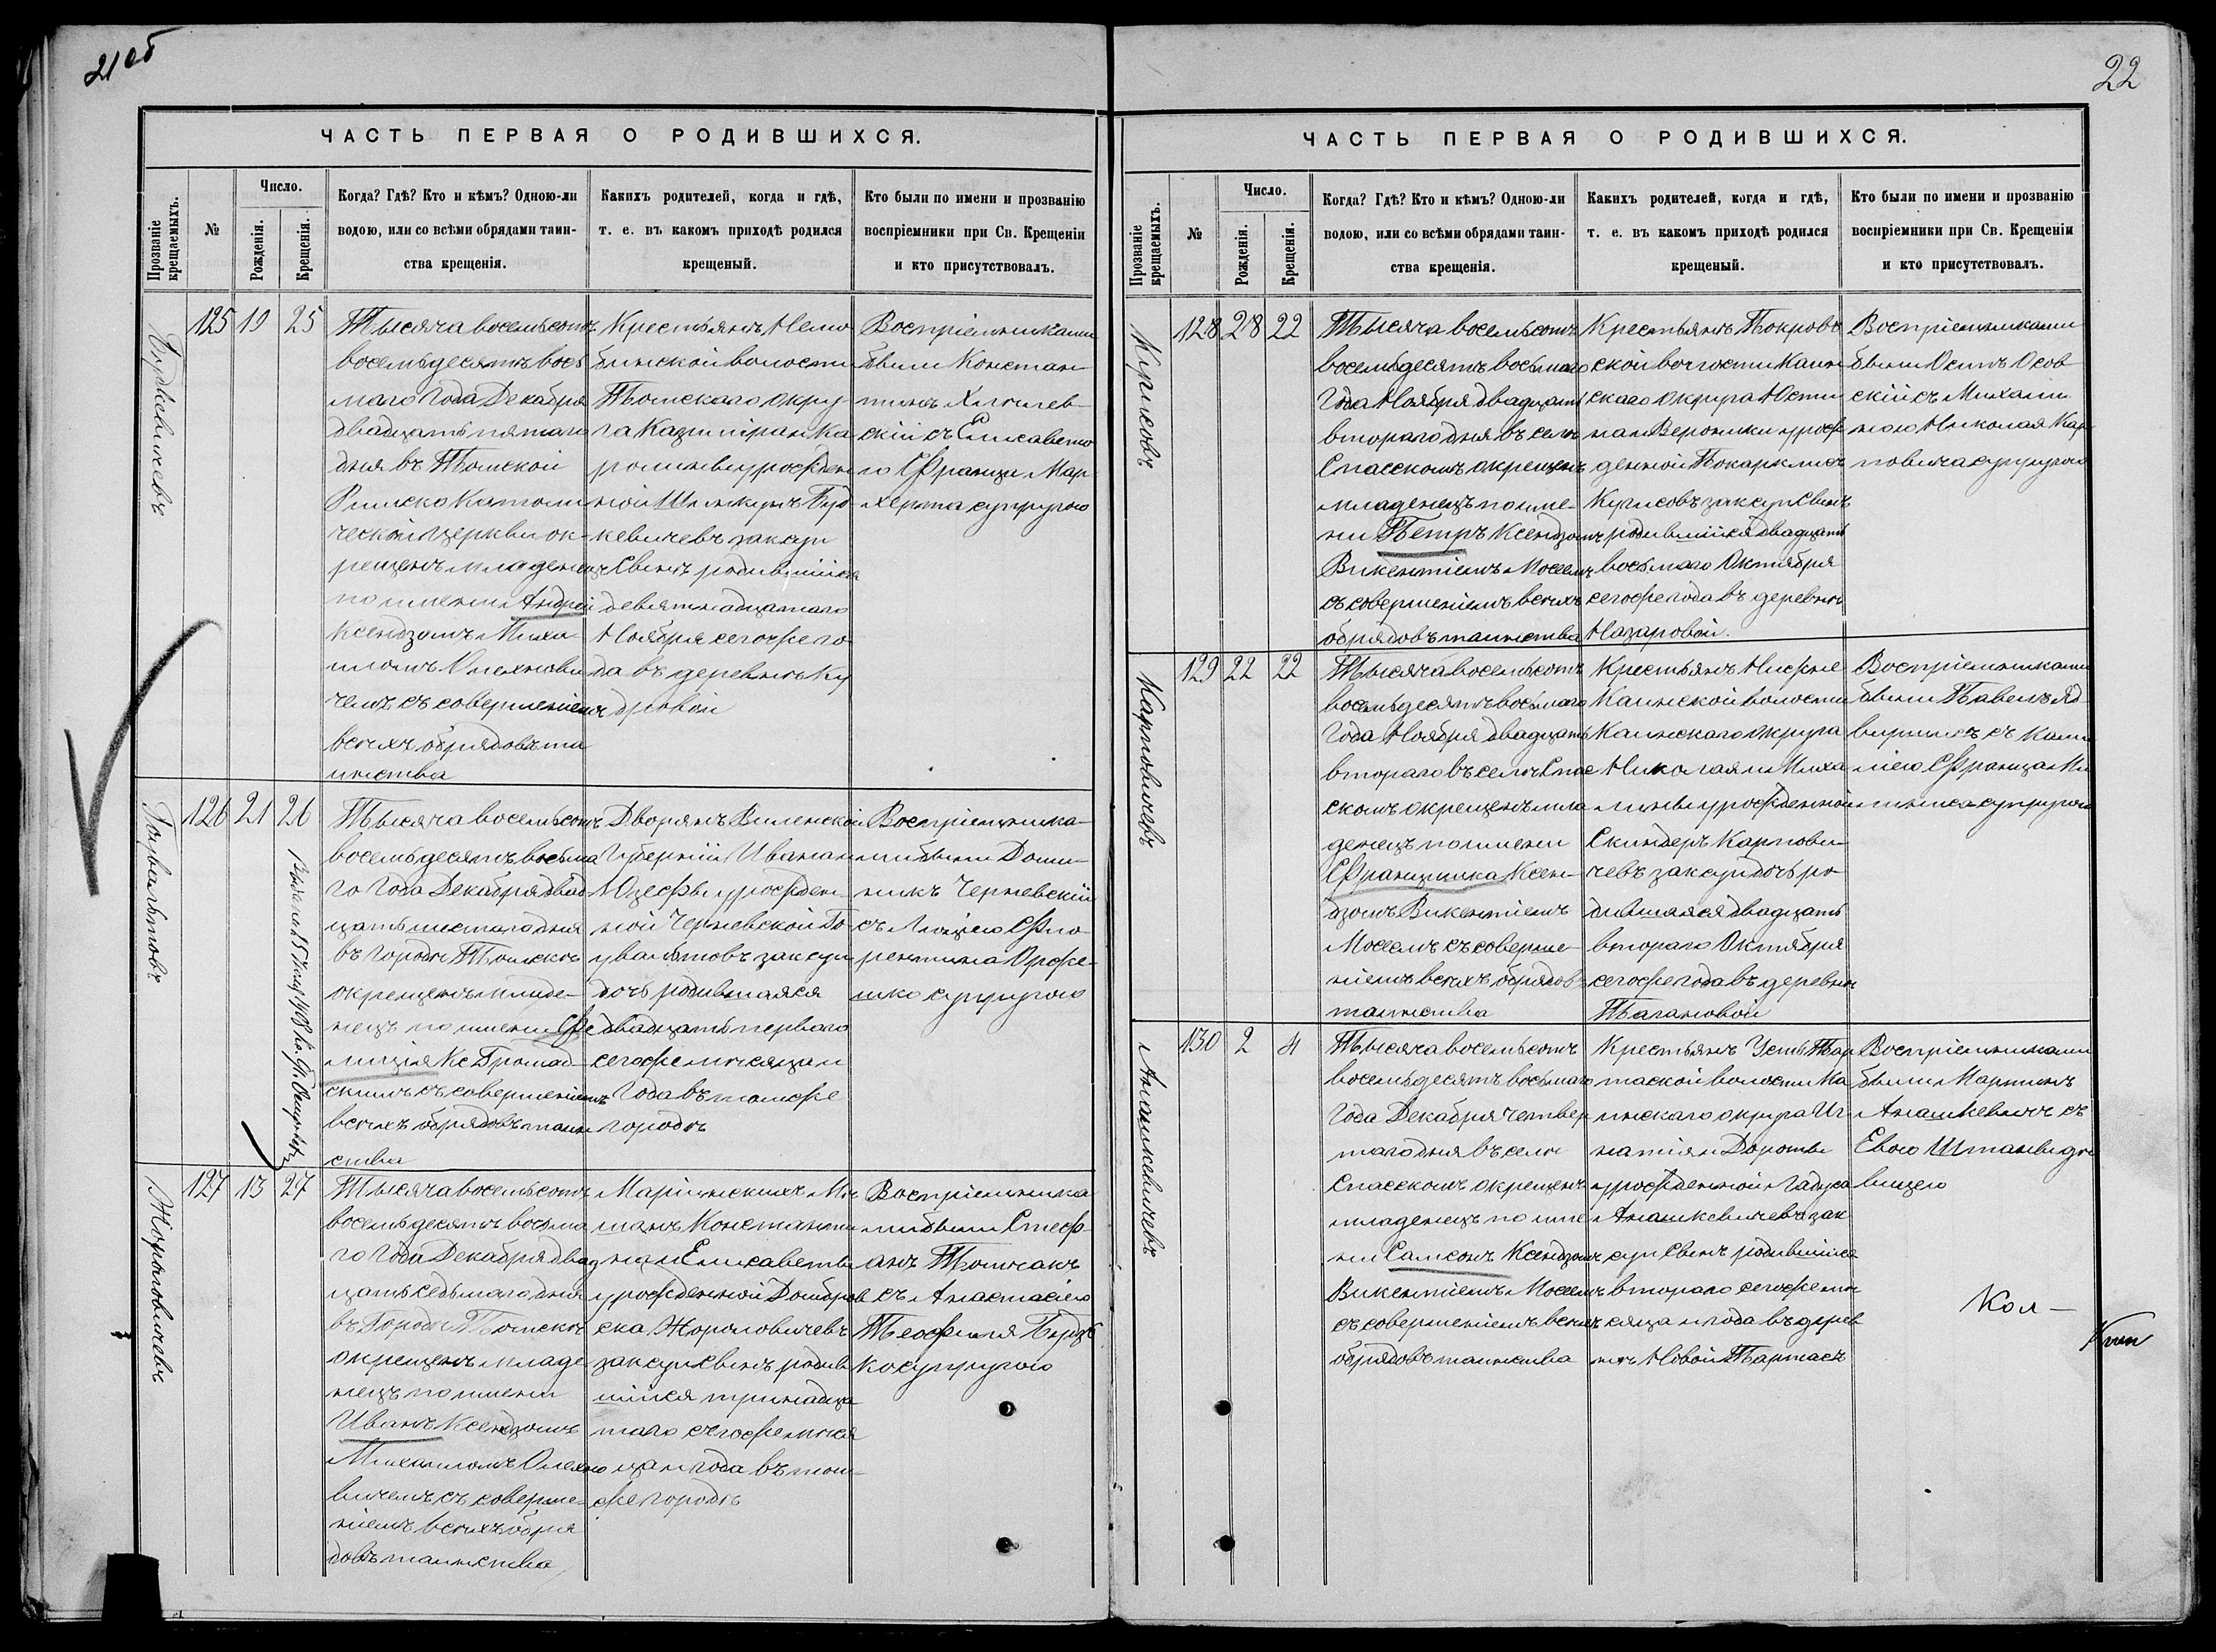 21 об
ЧАСТЬ ПЕРВАЯ О РОДИВШИХСЯ.
Прозваніе крещаемыхъ.
№
Число.
Рожденія.
Крещенія.
Когда? Гдѣ? Кто и кѣмъ? Одною-ли
водою, или со всѣми обрядами таин-
ства крещенія.
Какихъ родителей, когда и гдѣ,
т. е. въ какомъ приходѣ родился
крещеный.
Кто были по имени и прозванію
воспріемники при Св. Крещеніи
и кто присутствовалъ.
125 19 25
Тысяча восемьсотъ
восемьдесятъ вось
маго Года Декабря
двадцать пятаго
дня въ Томской
Римско Католи
ческой церкви ок-
рещенъ младенецъ
по имени Андрей
Ксендзомъ Миха
иломъ Олехнови
чемъ съ совершеніемъ
всѣхъ обрядовъ та
инства
Крестьянъ Нелю
бинской волости
Томскаго окру-
га Казиміра и Ка
ролины урожден
ной Буд-
кевичевъ зак. суп
Сынъ родившійся
девятнадцатаго
Ноября сего же го
да въ деревнѣ Ку
дровой
Воспріемниками
были Констан-
тинъ
скій съ Елисавето
ю Франца Мар
херта супругою
Будкевичевъ
126 21 26
Тысяча восемьсотъ
восемьдесятъ восьма
го Года Декабря двад
цать шестаго дня
въ городѣ Томскѣ
окрещенъ младе-
нецъ по имени Фе
лиція Кс Громад-
скимъ съ совершеніемъ
всѣхъ обрядовъ таин
ства
Дворянъ Виленской
Губерніи Ивана и
Юзефы урожден
ной Черневской Го-
увальтовъ зак суп
дочь родившаяся
двадцать перваго
сего же мѣсяца и
Года въ томже
городѣ
Воспріемника-
ми были Доми-
никъ Черневскій
съ Люціею Фло-
рентина Орже-
шко супругою
127 13 27
Тысяча восемьсотъ
восемьдесятъ восьма
го Года Декабря двад
цать седьмаго дня
въ Городѣ Томскѣ
окрещенъ младе
нецъ по имени
Иванъ Ксендзомъ
Михаиломъ Олехно
вичемъ съ соверше-
ніемъ всѣхъ обря
довъ таинства
Маріинскихъ Мѣ
щанъ Констант
на и Елисаветы
урожденной Домбров
ска Жороловичевъ
зак суп Сынъ родив
шійся тринадца
таго сего же мѣся
ца и года въ том-
же городѣ
Воспріемника
ми были Стеф
анъ Томчакъ
съ Анастасіею
Теофиля Бурдз
ко супругою
22
ЧАСТЬ ПЕРВАЯ О РОДИВШИХСЯ.
Прозваніе крещаемыхъ.
№
Число.
Рожденія.
Крещенія.
Когда? Гдѣ? Кто и кѣмъ? Одною-ли
водою, или со всѣми обрядами таин-
ства крещенія.
Какихъ родителей, когда и гдѣ,
т. е. въ какомъ приходѣ родился
крещеный.
Кто были по имени и прозванію
воспріемники при Св. Крещеніи
и кто присутствовалъ.
128 28 22
Тысяча восемьсотъ
восемьдесятъ восьмаго
Года Ноября двадцать
втораго дня въ селѣ
Спасскомъ окрещенъ
младенецъ по име-
ни Петръ Ксендзомъ
Викентіемъ Моссемъ
съ совершеніемъ всѣхъ
обрядовъ таинства
Крестьянъ Покров
ской волости Каин
скаго округа Юсти
на и Вероники урож
денной
зак суп Сынъ
родившійся двадцать
восьмаго Октября
сего же года въ деревнѣ
Назаровой.
Воспріемниками
были Осипъ Осов
скій съ Михали
ною Николая Кар
повича супругою
129 22 22
Карповичевъ
Тысяча восемьсотъ
восемьдесятъ восьмаго
Года Ноября двадцать
втораго въ селѣ Спас
скомъ окрещенъ мла
денецъ по имени
Францишка Ксен-
дзомъ Викентіемъ
Моссемъ съ соверше-
ніемъ всѣхъ обрядовъ
таинства
Крестьянъ Нижне
Каинской волости
Каинскаго округа
Николая и Миха
лины урожденной
Скиндеръ Карпови-
чевъ зак суп дочь ро-
дившаяся двадцать
втораго Октября
сего же года въ деревнѣ
Тагановой
Воспріемниками
были Павелъ
съ
Франца
супругою
130 2 4
Анашкевичевъ
Тысяча восемьсотъ
восемьдесятъ восьмаго
Года Декабря четвер
таго дня въ селѣ
Спасскомъ окрещенъ
младенецъ по име
ни Самсонъ Ксендзомъ
Викентіемъ Моссемъ
съ совершеніемъ всѣхъ
обрядовъ таинства
Крестьянъ Усть Тар
таской волости Ка
инскаго округа Иг
натія и Дороты
урожденной Гадуса
Анашкевичевъ зак
суп Сынъ родившійся
втораго сего же мѣ
сяца и года въ дерев
нѣ Новой Тартасъ
Воспріемниками
были Мартинъ
Анашкевичъ съ
Евою
вицею
Кол-